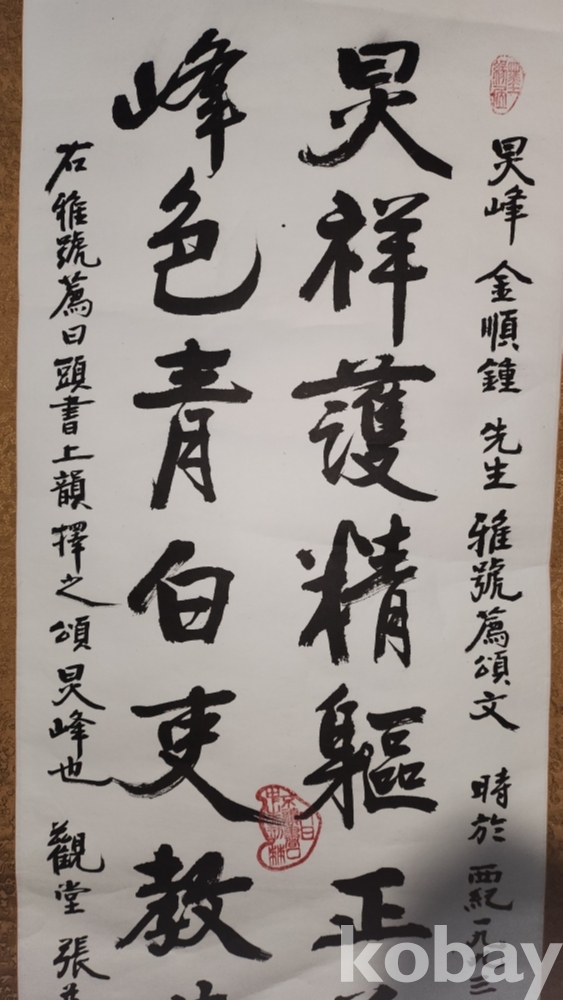 炅峰 金順鍾 先生 雅號薦頌文 時於 西紀一九
炅祥護精軀正
峰色青白吏教
右雅號薦曰頭書上韻擇之頌炅峰也 觀堂 張
kobay